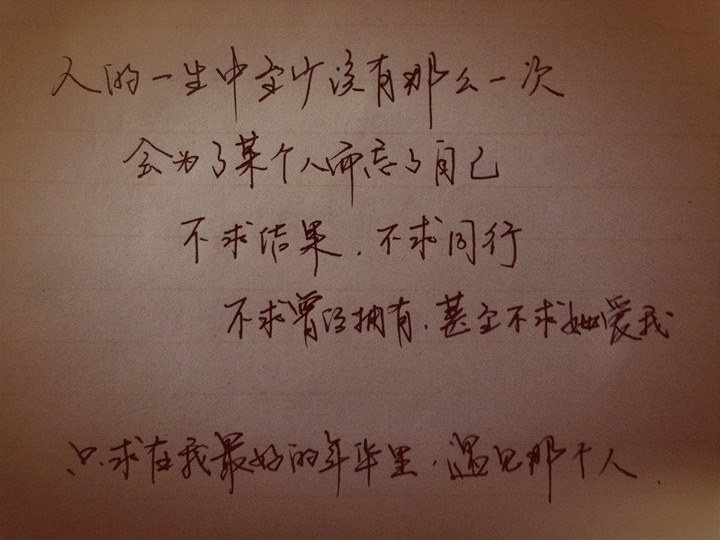 人的一生中至少该有那么一次
会为了某个人而忘了自己
不求结果.不求同行
不求曾经拥有.甚至不求她爱我
只求在我最好的年华里.遇见那个人.